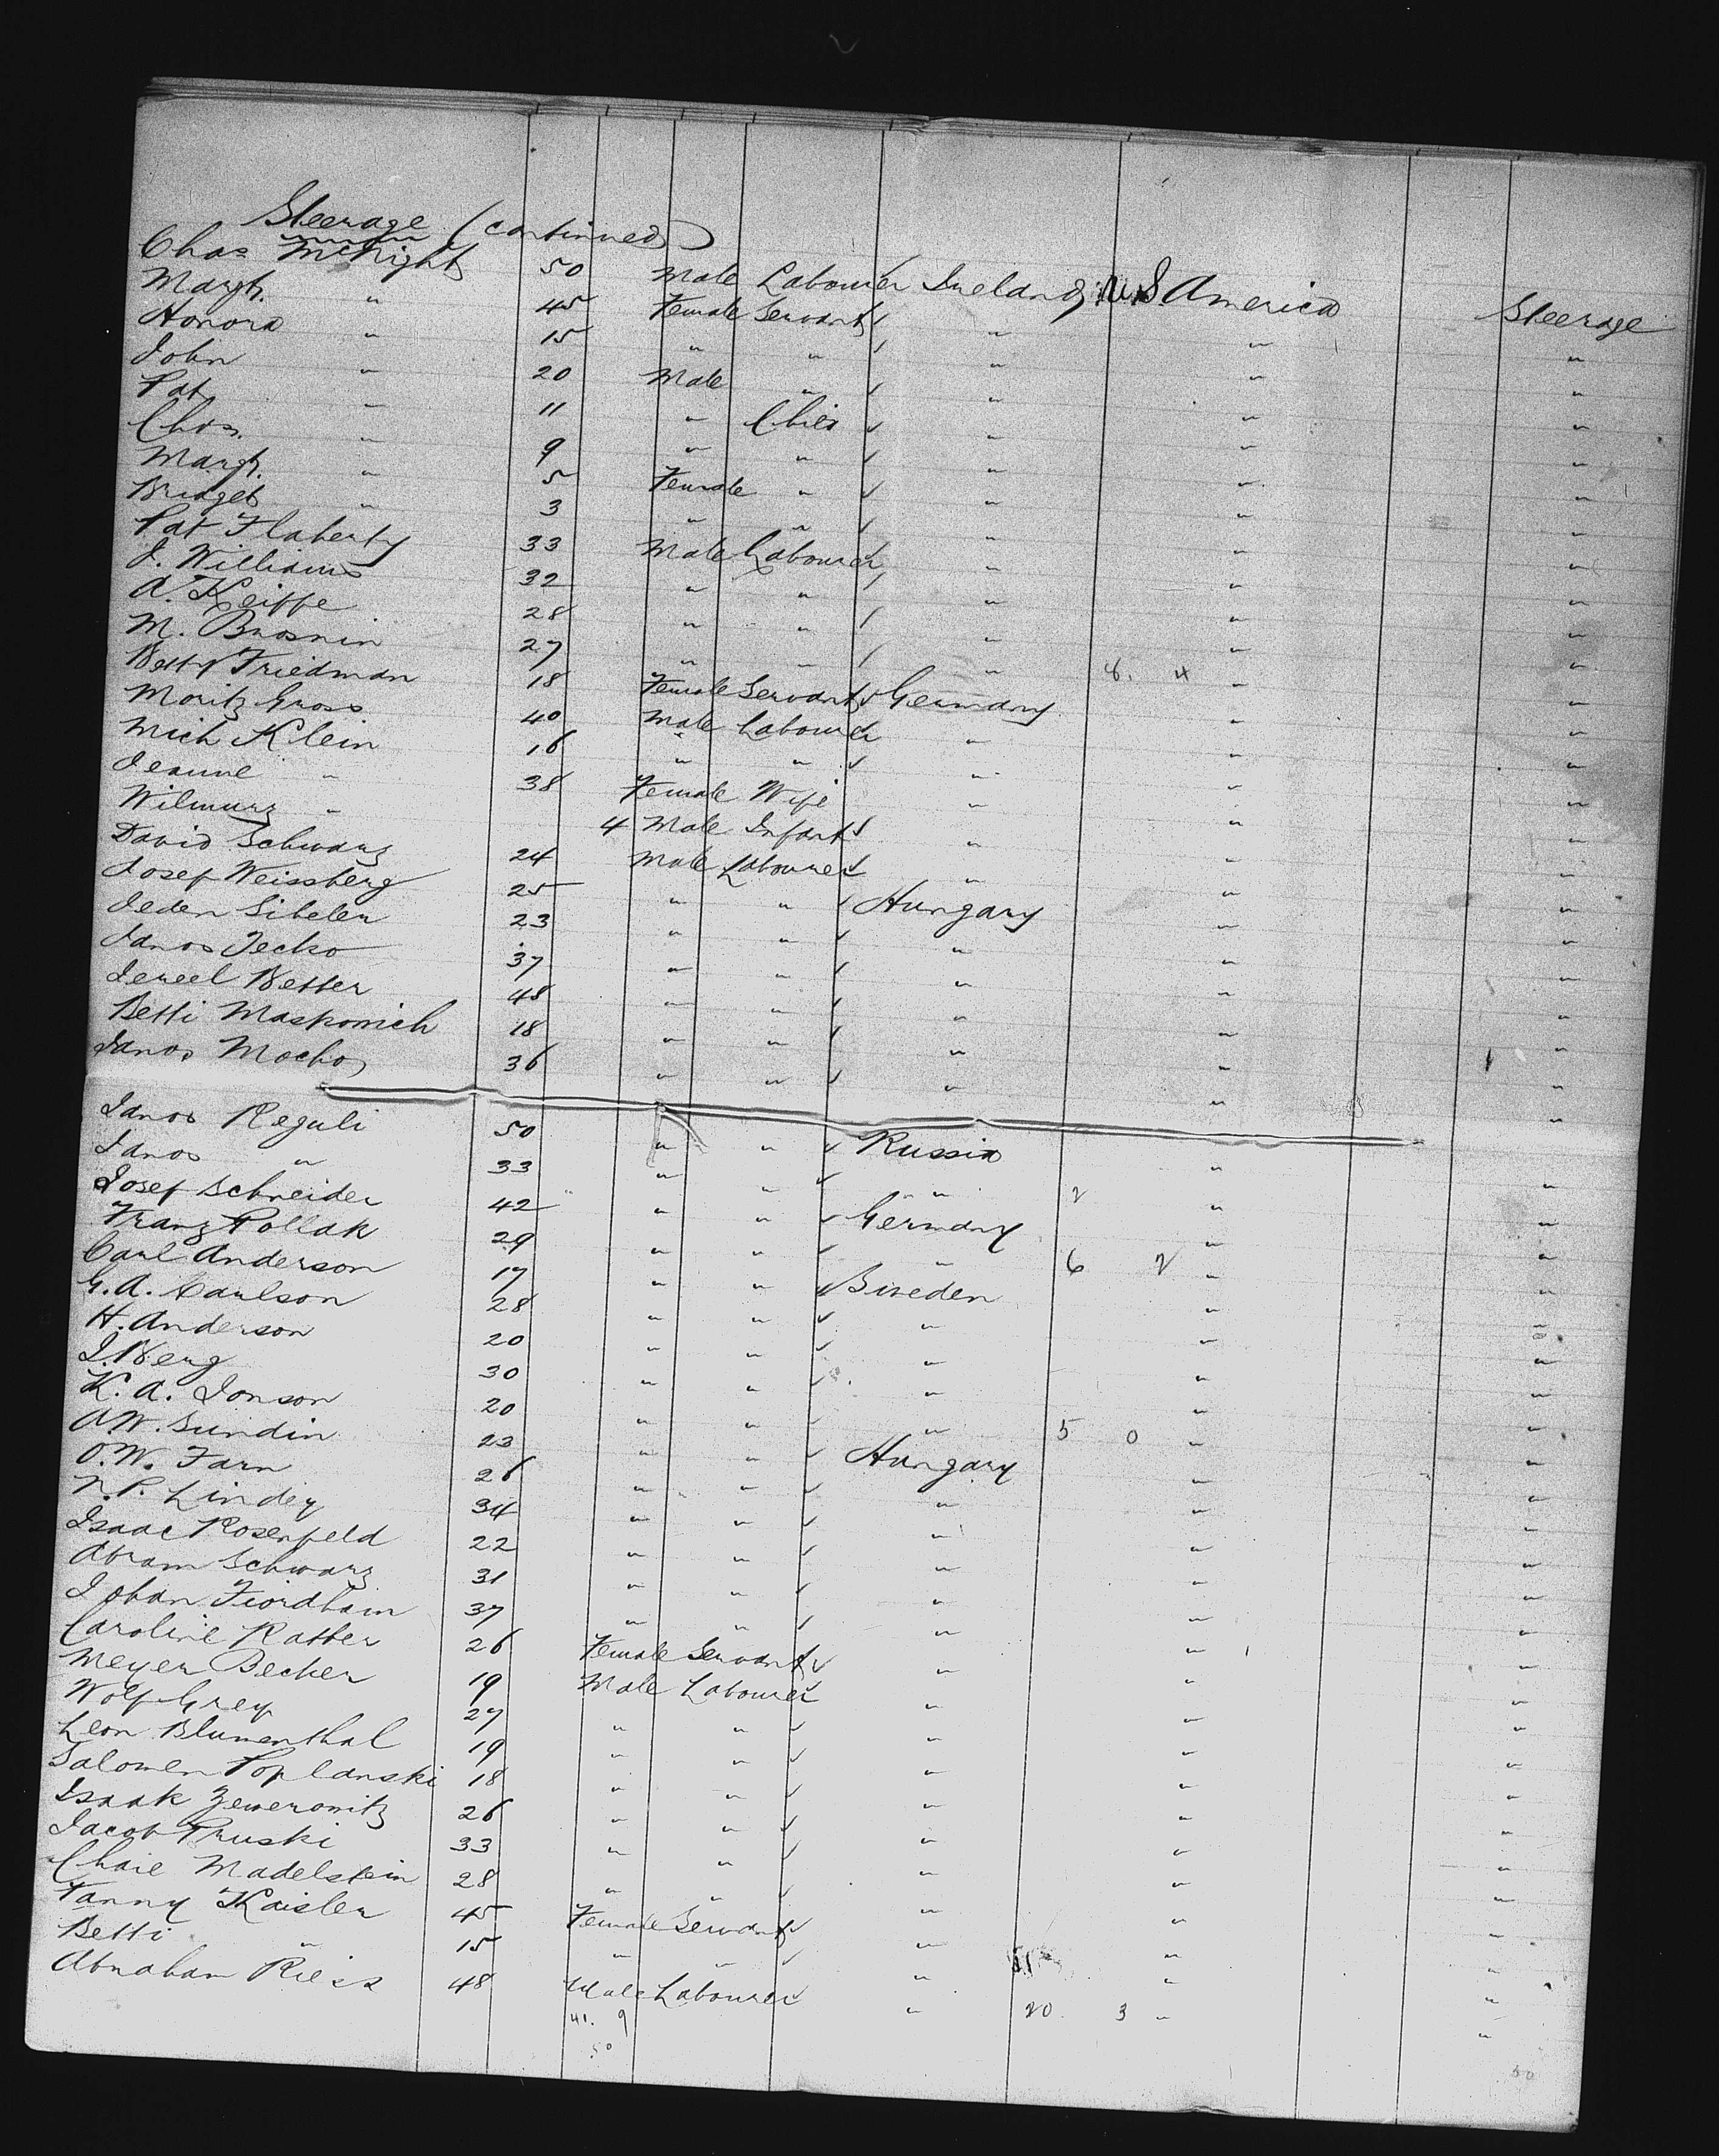 Steerage (continued)
Chas McNight 50 Male Labourer Ireland U.S. America Steerage
Margt. " 45 Female Servant " " "
Honora " 15 " " " " "
John " 20 Male " " " "
Pat " 11 " Child " " "
Chas. " 9 " " " " "
Margt. " 5 Female " " " "
Bridget " 3 " " " " "
Pat Flaherty 33 Male Labourer " " "
J. Williams 32 " " " " "
A. Keiffe 28 " " " " "
M. Brosnin 27 " " " 8. 4 " "
Betty Friedman 18 Female Servant Germany " "
Moritz Gross 40 Male Labourer " " "
Mich Klein 16 " " " " "
Jeanne " 38 Female Wife " " "
Wilmurz " 4 Male Infant " " "
David Schwarz 24 Male Labourer " " "
Josef Weissberg 25 " " Hungary " "
Jeden Sibeler 23 " " " " "
Janos Jecko 37 " " " " "
Jereel Better 48 " " " " "
Betti Maskovich 18 " " " " "
Janos Mocho 36 " " " " "
Janos Reguli 50 " " Russia " "
Janos " 33 " " " 2 " "
Josef Schneider 42 " " Germany " "
Franz Pollak 29 " " " 6 2 " "
Carl Anderson 17 " " Sweden " "
G.A. Carlson 28 " " " " "
H. Anderson 20 " " " " "
J. Berg 30 " " " " "
K. A. Jonson 20 " " " 5 0 " "
A.W. Sundin 23 " " Hungary " "
O.W. Farn 26 " " " " "
N.P. Lindey 34 " " " " "
Isaac Rosenfeld 22 " " " " "
Abram Schwarz 31 " " " " "
Johan Fiordhain 37 " " " " "
Caroline Rather 26 Female Servant " " "
Meyer Becher 19 Male Labourer " " "
Wolf Grey 27 " " " " "
Leon Blumenthal 19 " " " " "
Salomen Poplanski 18 " " " " "
Isaak Zewerowitz 26 " " " " "
Jacob Pruski 33 " " " " "
Chaie Madelstein 28 " " " " "
Fanny Kaisler 45 Female Servant " " "
Betti " 15 " " " " "
Abraham Riess 48 Male Labourer " 20. 3 " "
41. 9
50
50